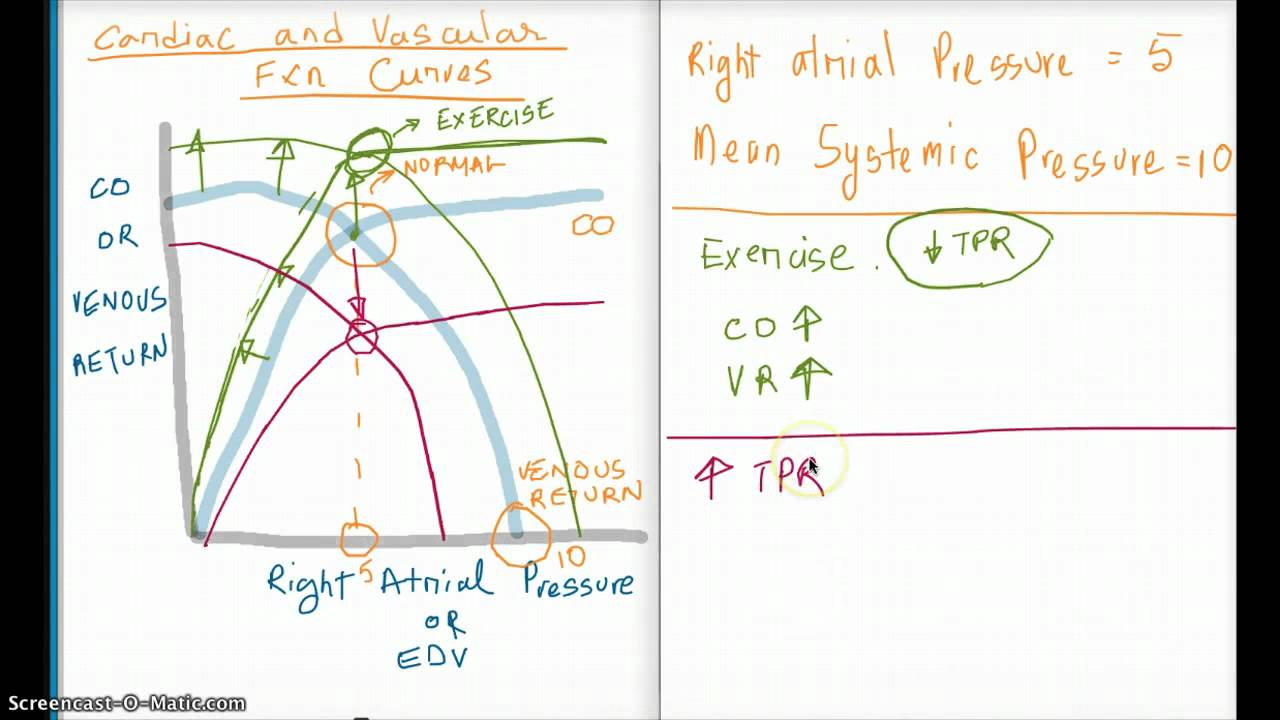 Cardiac and Vascular
Fxn Curves
EXERCISE
NORMAL
CO
OR
VENOUS
RETURN
CO
VENOUS
RETURN
5
10
Right Atrial Pressure
OR
EDV
Right atrial Pressure = 5
Mean Systemic Pressure = 10
Exercise. ↓ TPR
CO ↑
VR ↑
↑ TPR
Screencast-O-Matic.com